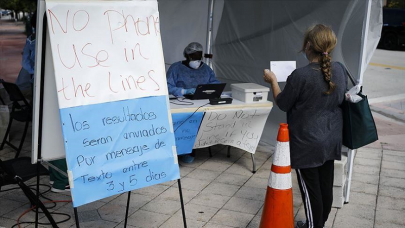 No Phone
Use in
the Lines
los resultados
Seran enviados
Por mensaje de
Texto entre
3 y 5 dias